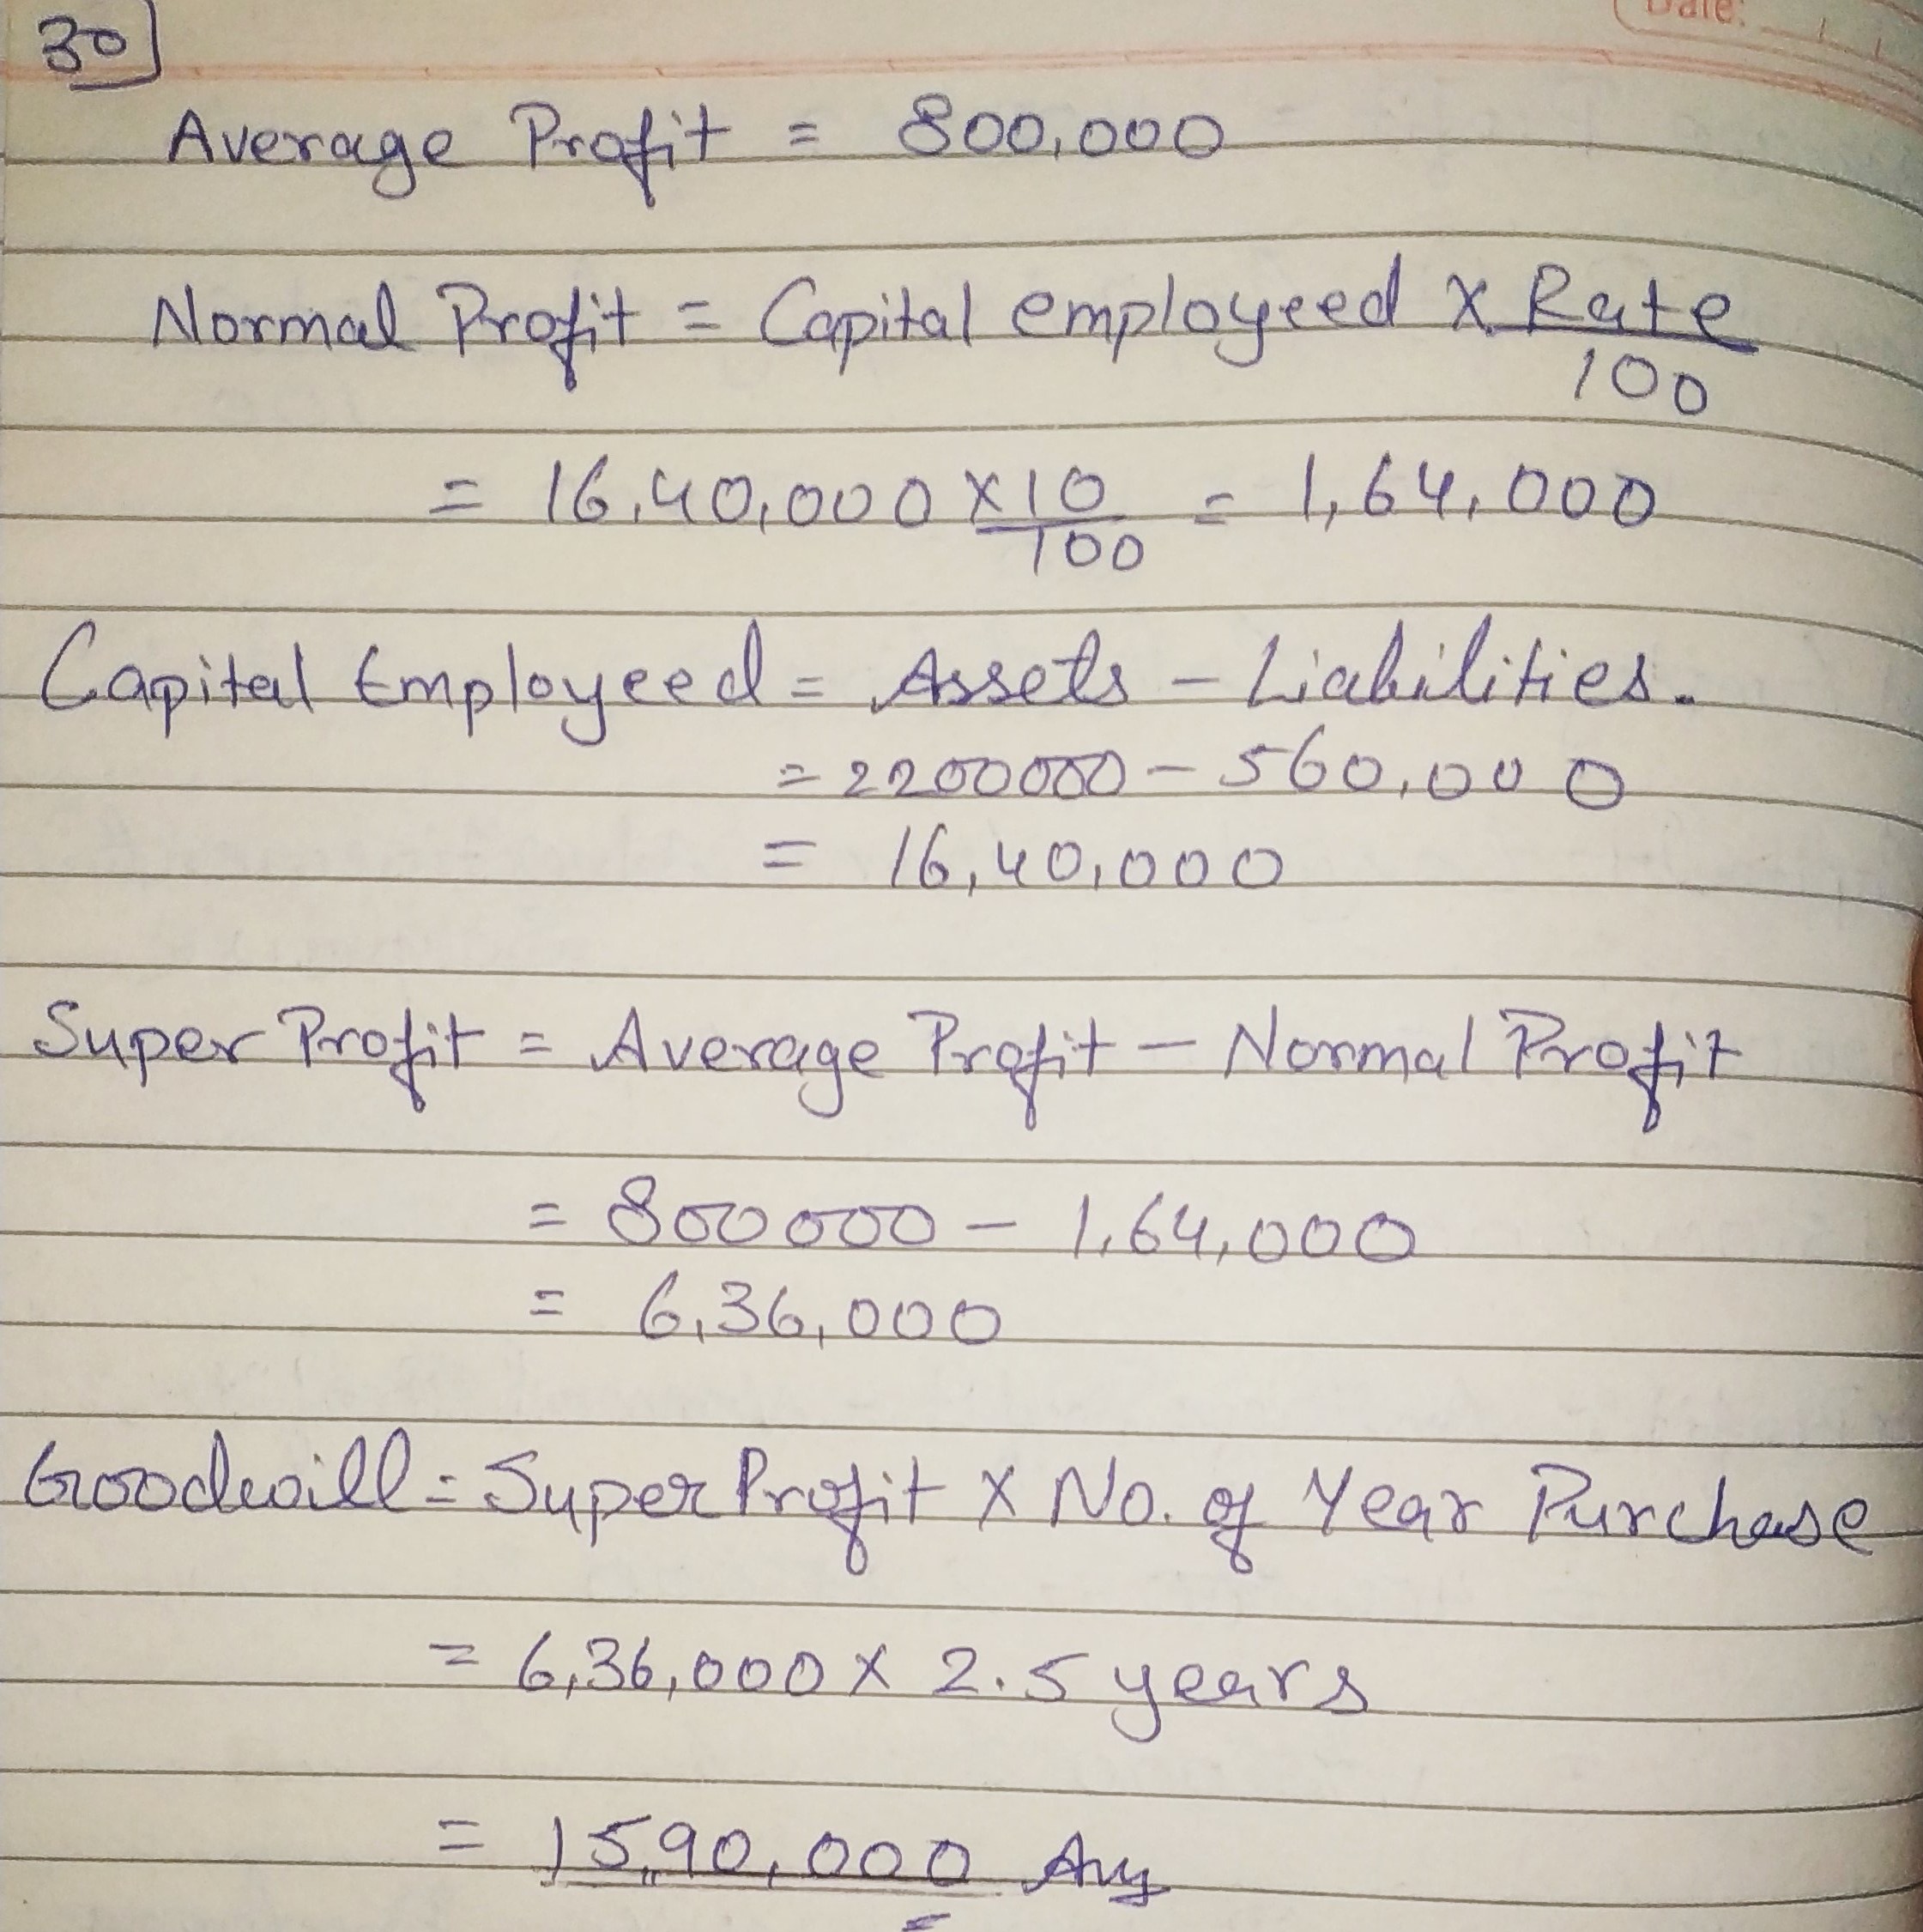 Date:
30
Average Profit = 800,000
Normal Profit = Capital employeed x Rate
100
= 16,40,000 x 10 = 1,64,000
100
Capital Employeed = Assets - Liabilities.
= 2200000 - 560,000
= 16,40,000
Super Profit = Average Profit - Normal Profit
= 800000 - 1,64,000
= 6,36,000
Goodwill = Super Profit x No. of Year Purchase
= 6,36,000 x 2.5 years
= 15,90,000